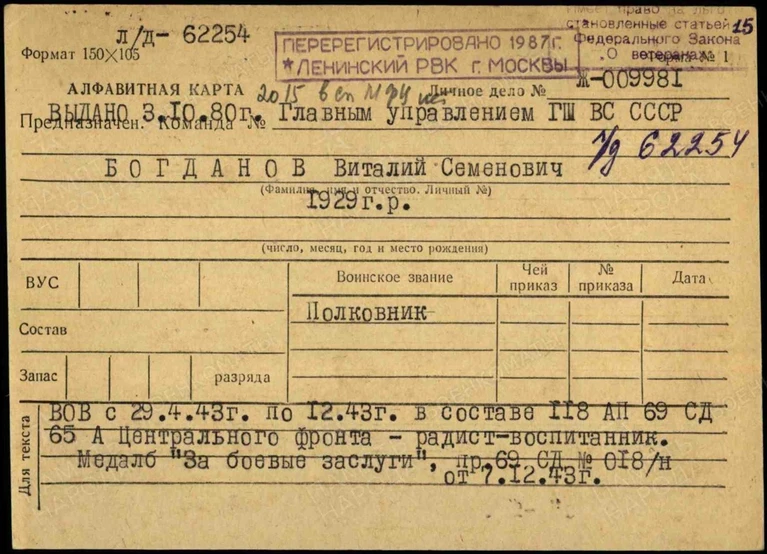 л/д- 62254
Формат 150×105
имеет право на льго
становленные статьей 15
Федерального Закона
О ветеранах
Форма № 1
ПЕРЕРЕГИСТРИРОВАНО 1987г.
*ЛЕНИНСКИЙ РВК г. МОСКВЫ
АЛФАВИТНАЯ КАРТА
Личное дело № Ж-009981
ВЫДАНО 3.10.80г. Главным управлением ГШ ВС СССР
Предназначен. Команда №
л/д 62254
БОГДАНОВ Виталий Семенович
(Фамилия, имя и отчество. Личный №)
1929г.р.
(число, месяц, год и место рождения)
ВУС
Воинское звание
Чей приказ
№ приказа
Дата
Полковник
Состав
Запас
разряда
Для текста
ВОВ с 29.4.43г. по 12.43г. в составе 118 АП 69 СД
65 А Центрального фронта - радист-воспитанник.
Медалб "За боевые заслуги", пр.69 СД № 018/н
от 7.12.43г.